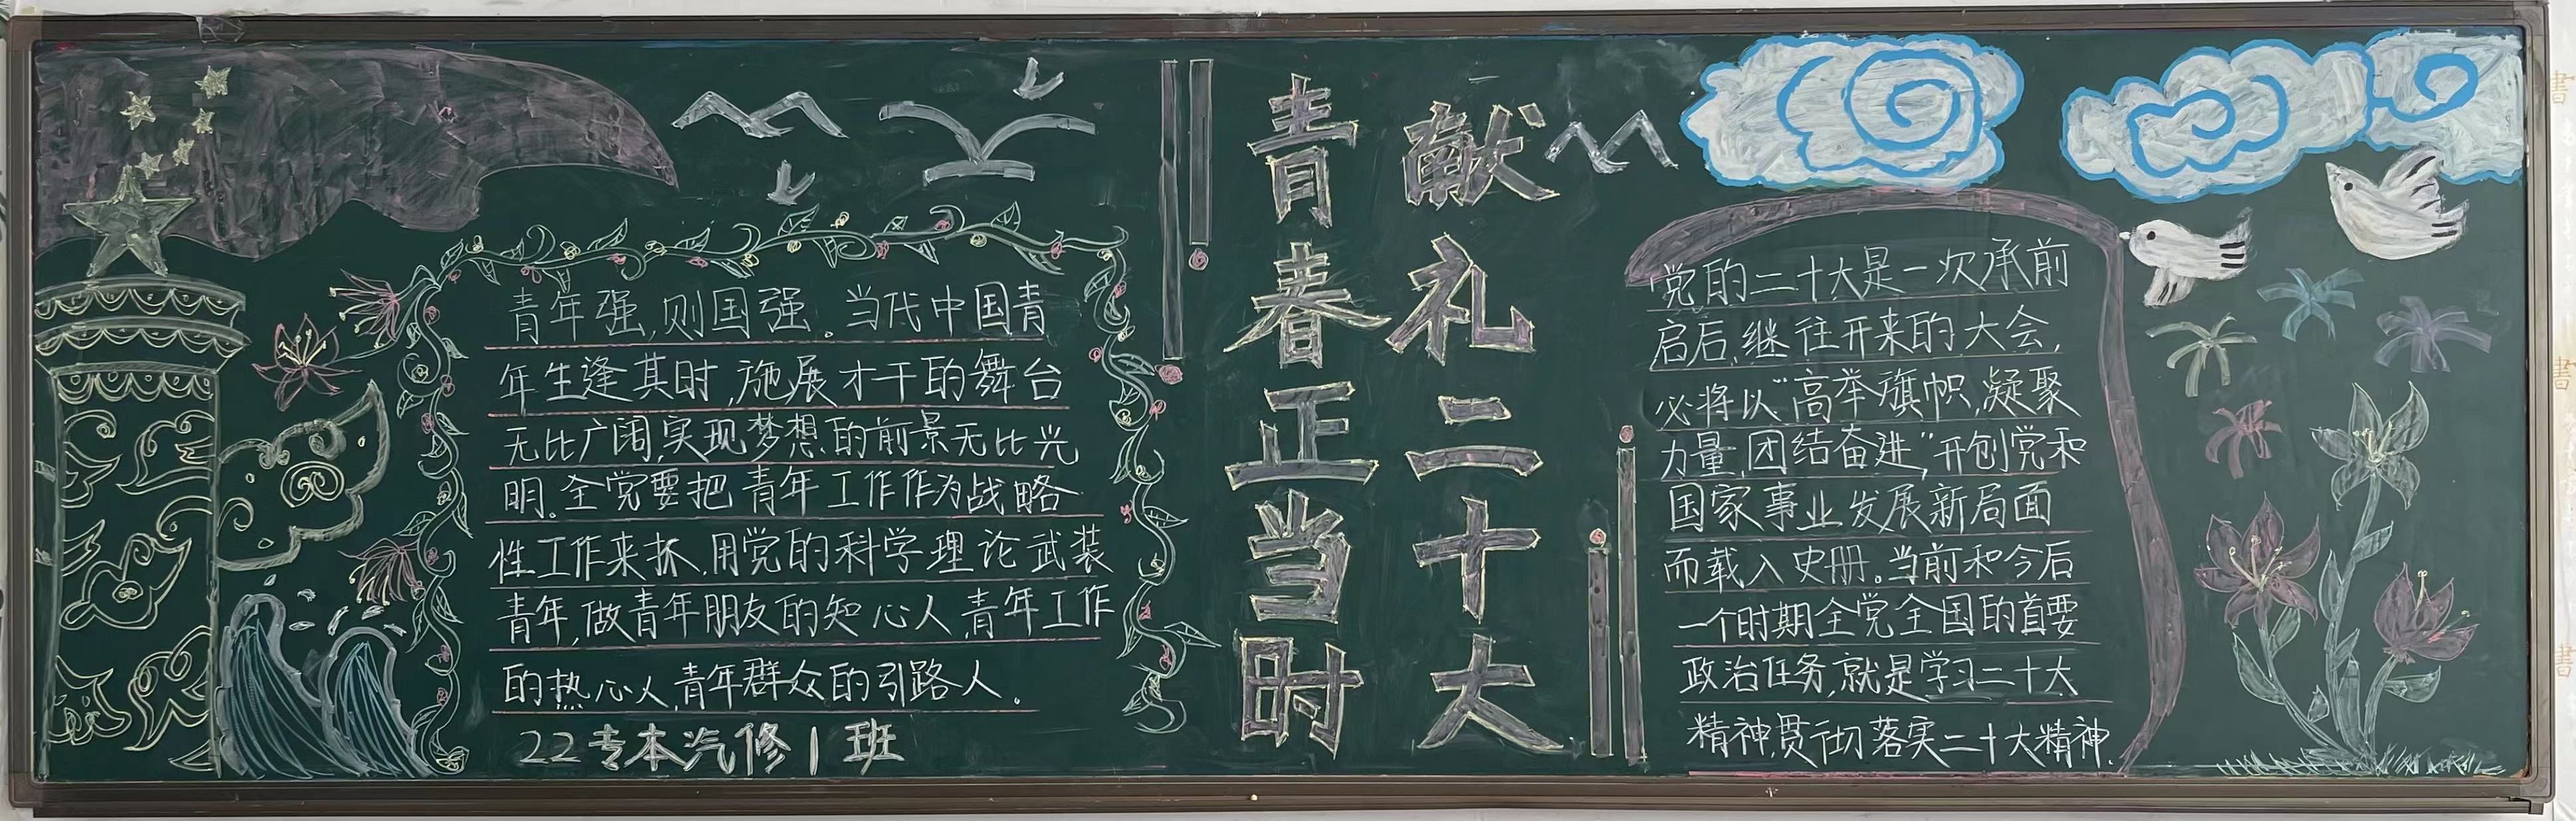 青年强,则国强。当代中国青
年生逢其时,施展才干的舞台
无比广阔,实现梦想的前景无比光
明。全党要把青年工作作为战略
性工作来抓,用党的科学理论武装
青年,做青年朋友的知心人,青年工作
的热心人,青年群众的引路人.
22专本汽修1班
青春正当时
献礼二十大
党的二十大是一次承前
启后,继往开来的大会,
必将以“高举旗帜,凝聚
力量,团结奋进,”开创党和
国家事业发展新局面
而载入史册。当前和今后
一个时期全党全国的首要
政治任务,就是学习二十大
精神,贯彻落实二十大精神.